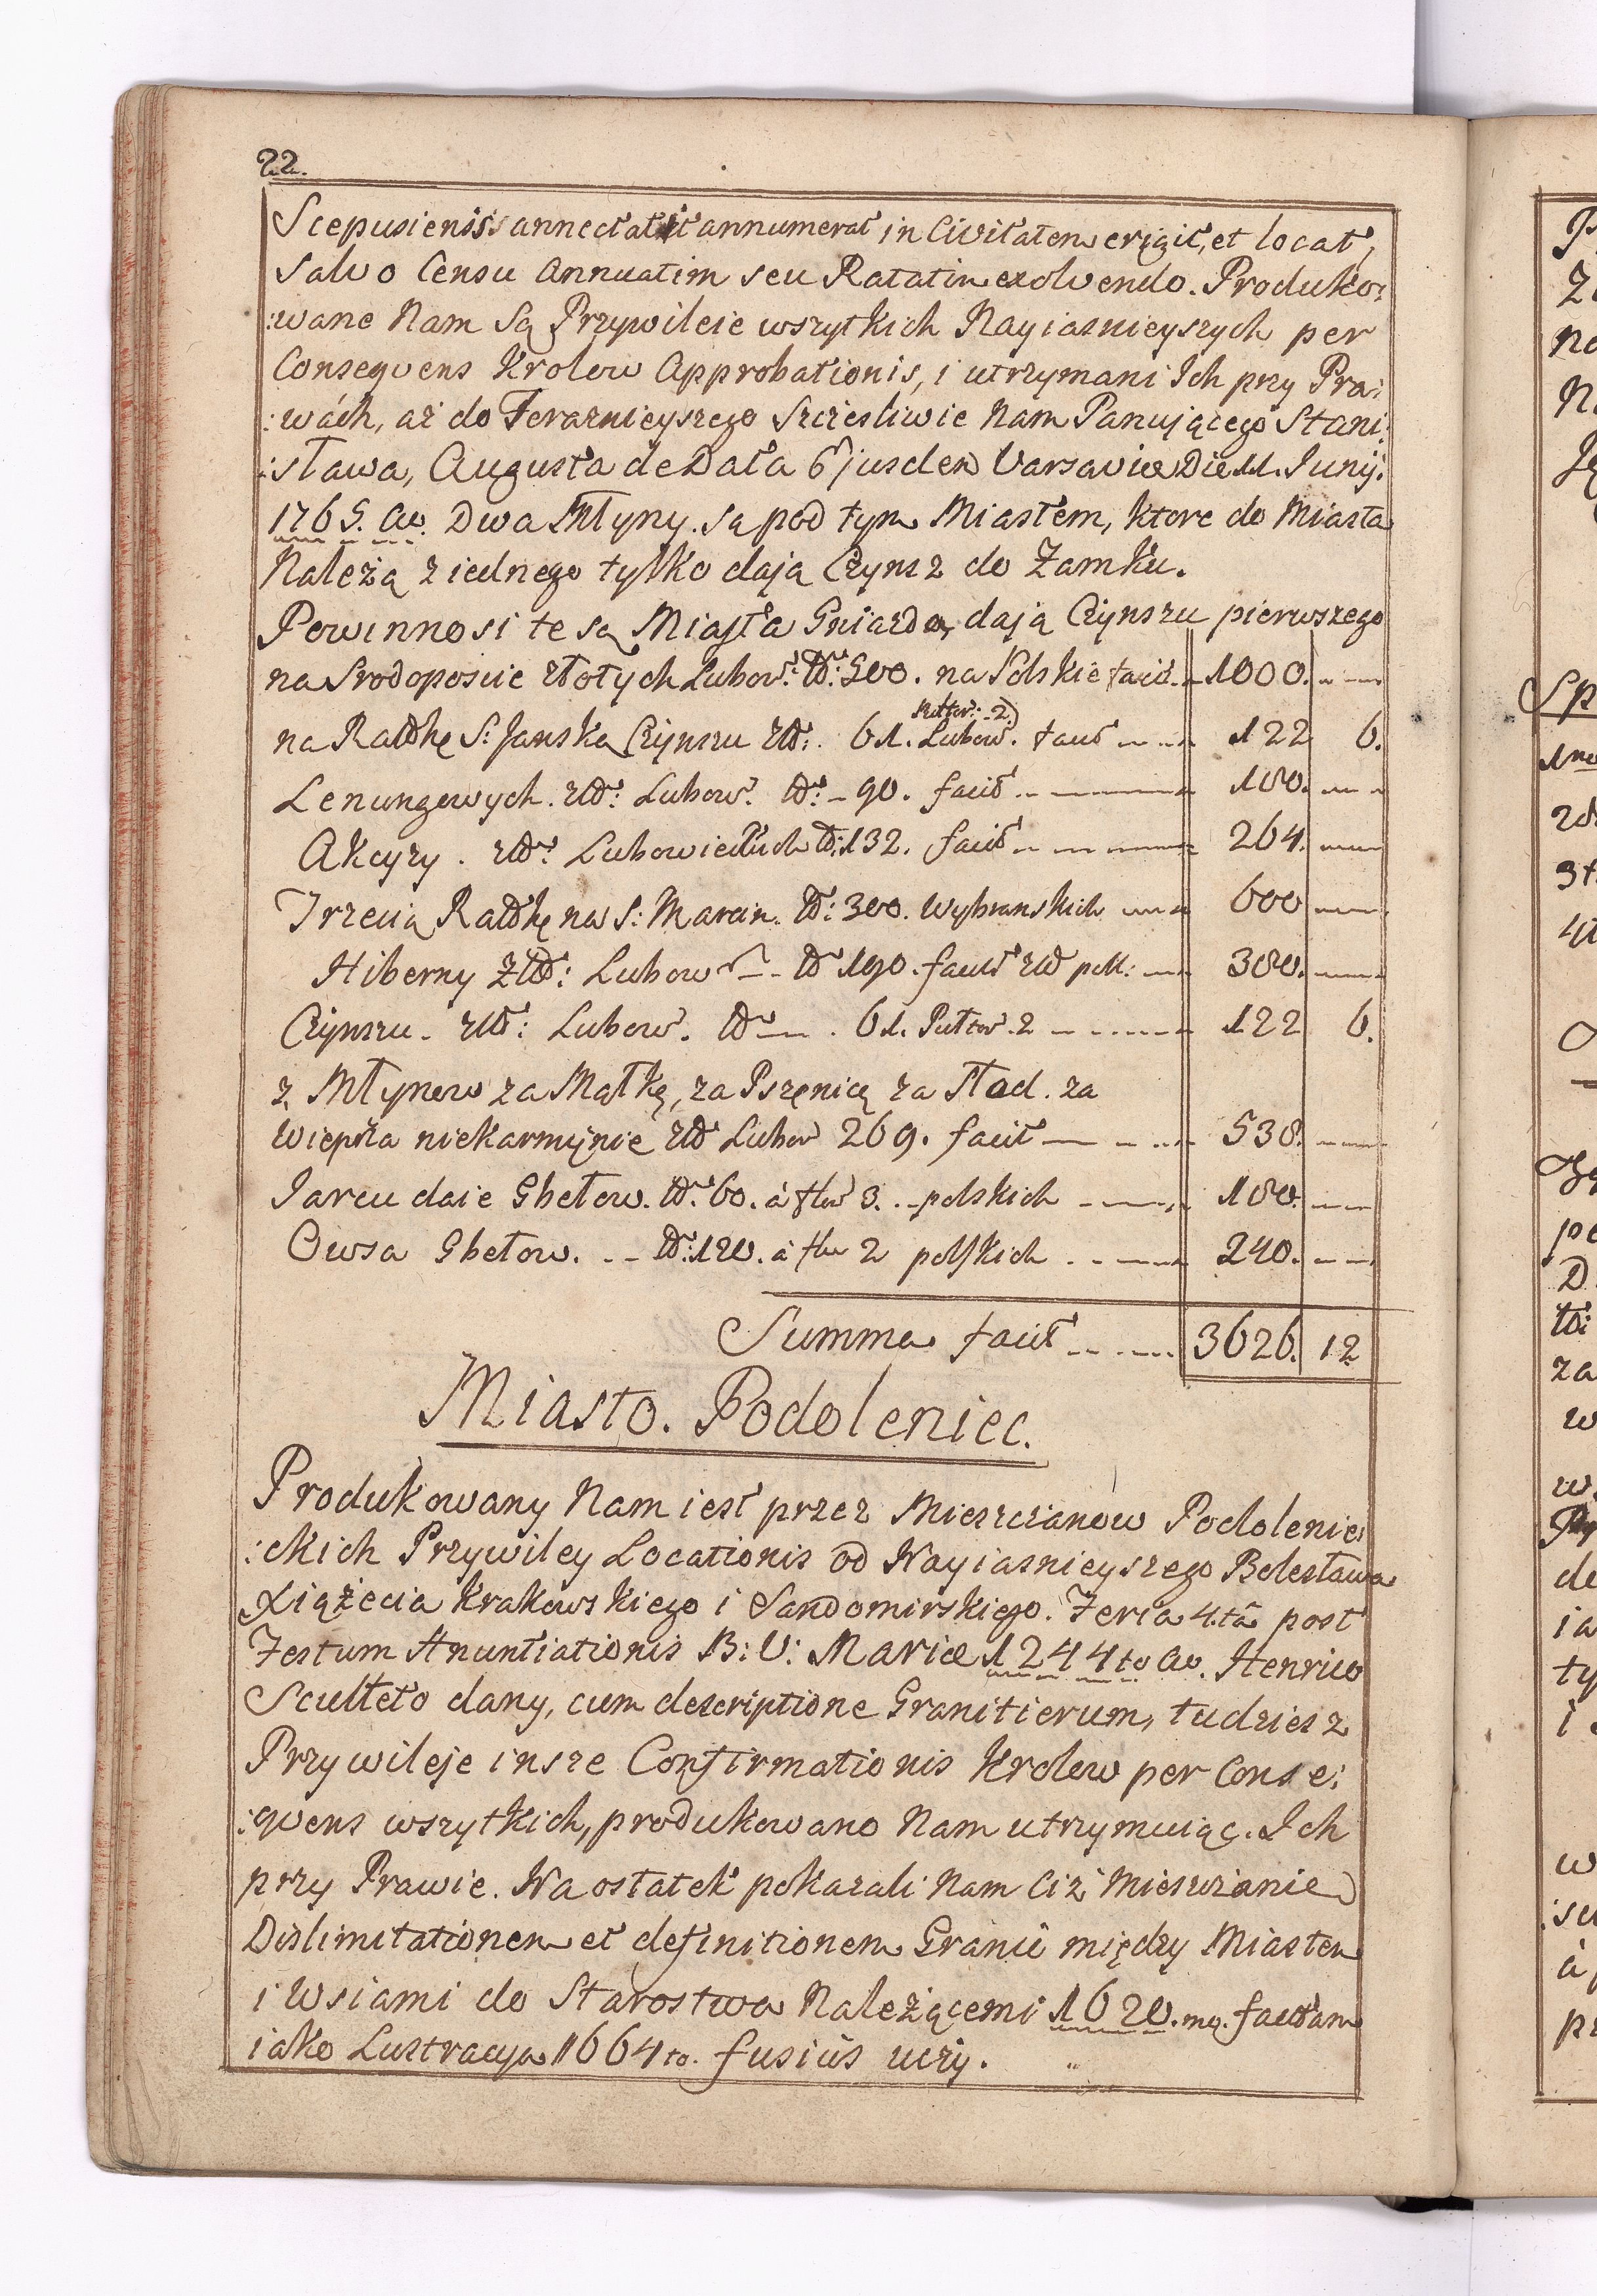 22.
Scepusiensis annectat et annumerat in Civitatem erigit, et locat,
Salvo Censu Annuatim seu Ratatim exolvendo. Produko:
:wane Nam Są Przywileie wszytkich Nayiasnieyszych per
Conseqvens Krolow Approbationis, i utrzymani Ich przy Pra:
:wách, aż do Teraznieyszego Szczesliwie Nam Panującego Stani:
:sława, Augusta de Data Ejusdem Varsaviæ Die 11. Junij.
1765. Ao. Dwa Młyny. są pod tym Miastem, ktore do Miasta
Należą z iednego tylko dają Czynsz do Zamku.
Powinnosi te są Miasta Gniazda, dają Czynszu pierwszego
na Srodoposcie złotych Lubow: No: 500. na Polskie facit 1000.
na Ratkę S: Janską Czynszu Zł: 61. Lubow. Półtor: 2 facit 122 6.
Lenungowych. Zł: Lubow. No: 90. facit 180.
Akcyzy. Zł: Lubowieckich No: 132. facit 264.
Trzecią Ratkę na S: Marcin. No: 300. Wybranskich 600
Hiberny Zł: Lubow No 190. facit Zł pol: 380.
Czynszu. Zł: Lubow. No 61. Półtor. 2 122 6.
z Młynow za Mątkę, za Pszenicę za Słod. za
Wieprza niekarmnie Zł Lubow 269. facit 538.
Jarcu daie Gbełow. No. 60. á flor 3. polskich 180.
Owsa Gbełow. No: 120. á flor 2 polskich 240.
Summa facit 3626. 12
Miasto. Podoleniec.
Produkowany Nam iest przez Mieszczanow Podolenie:
:ckich Przywiley Locationis od Nayiasnieyszego Bolesława
Xiążęcia Krakowskiego i Sandomirskiego. Feria 4.tâ post
Festum Anuntiationis B: V: Mariæ 1244to Ao. Henrico
Sculteto dany, cum descriptione Granitierum, tudziesz
Przywileje insze Confirmationis Krolow per Conse:
:qvens wszytkich, produkowano Nam utrzymuiąc. Ich
przy Prawie. Na ostatek pokazali Nam Ciż Mieszczanie
Dislimitationem et definitionem Granic między Miastem
i Wsiami do Starostwa Należącemi 1620.mo. factam
iako Lustracya 1664to. fusius uczy.